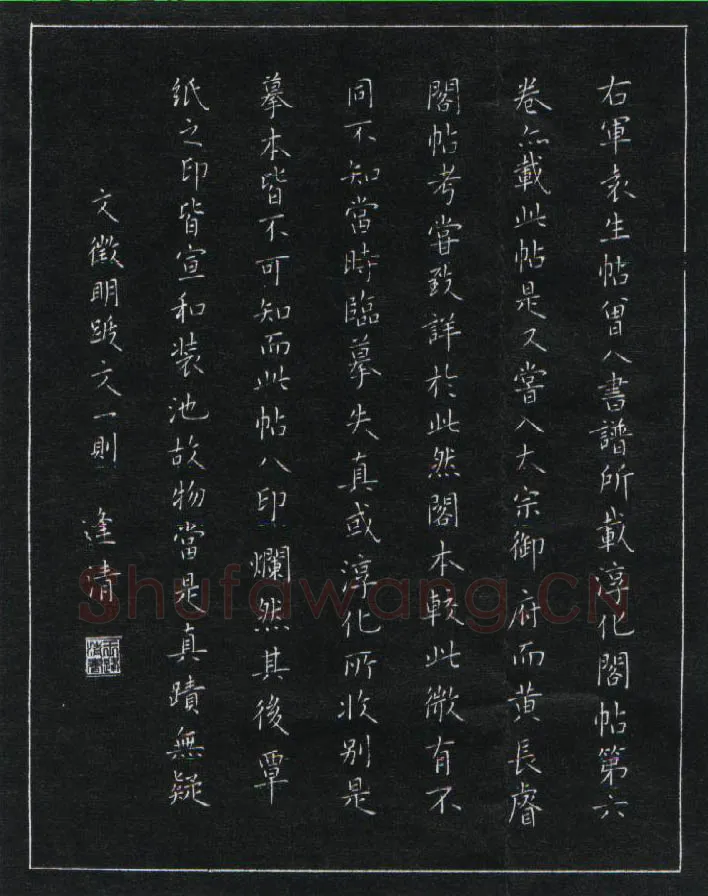 右軍袁生帖曾入書譜所載淳化閣帖第六
卷亦載此帖是又嘗入太宗御府而黄長睿
閣帖考嘗致詳於此然閣本較此微有不
同不知當時臨摹失真或淳化所收别是
摹本皆不可知而此帖八印爛然其後覃
紙之印皆宣和裝池故物當是真蹟無疑
文徵明跋文一則 逢清
Shufawang.CN